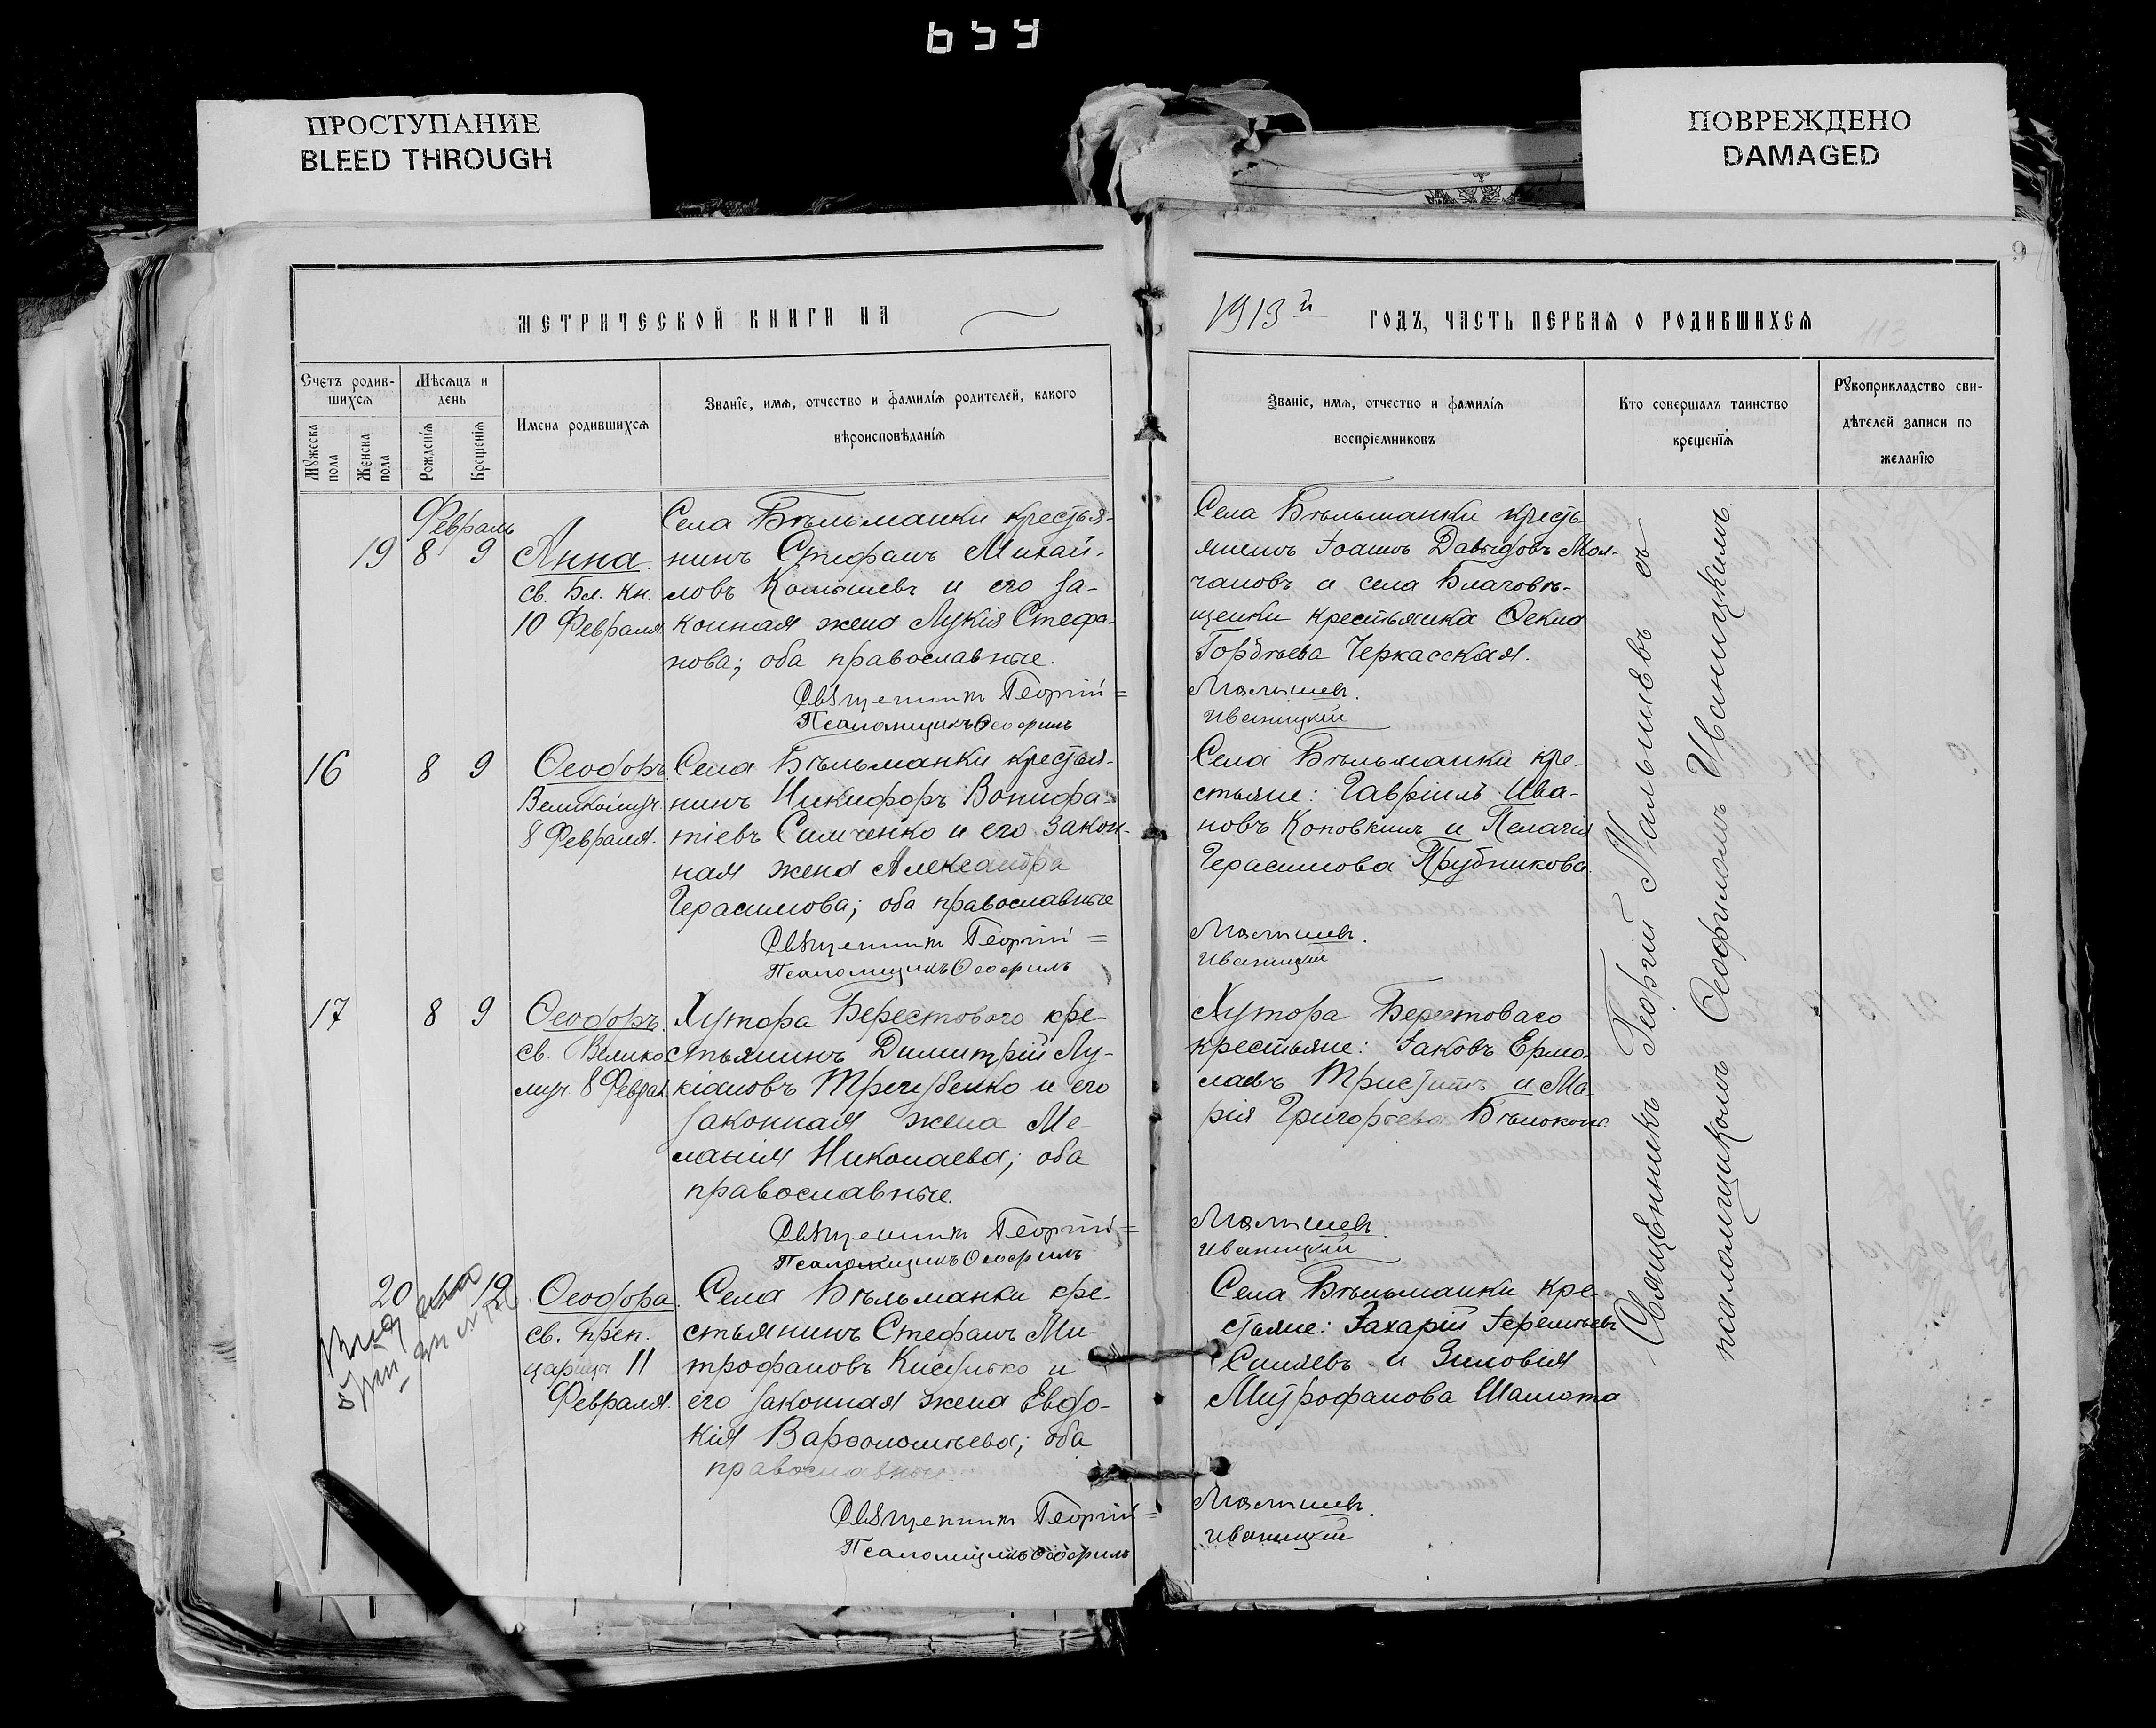 659
ПРОСТУПАНИЕ
BLEED THROUGH
ПОВРЕЖДЕНО
DAMAGED
9
МЕТРИЧЕСКОЙ КНИГИ НА
1913й ГОДЪ, ЧАСТЬ ПЕРВАЯ О РОДИВШИХСЯ
Счетъ родив-
шихся
Мужеска пола
Женска пола
Мѣсяцъ и
день
Рожденія
Крещенія
Имена родившихся
Званіе, имя, отчество и фамилія родителей, какого
вѣроисповѣданія
Званіе, имя, отчество и фамилія
воспріемниковъ
Кто совершалъ таинство
крещенія
Рукоприкладство сви-
дѣтелей записи по
желанію
Февраль
19 8 9
Анна.
св. Бл. Кн.
10 Февраля
Села Бѣльманки крестья-
нинъ Стефанъ Михай-
ловъ и его за-
конная жена Лукія Стефа-
нова; оба православные.
Священникъ Георгій =
Псаломщикъ Ѳеофилъ
Села Бѣльманки кресть-
янинъ Іоаннъ Давыдовъ Мол-
чановъ и села Благовѣ-
щенки крестьянка Ѳекла
Гордѣева Черкасская.
Малышевъ.
Иваницкій
16 8 9
Ѳеодоръ.
Великомуч.
8 Февраля.
Села Бѣльманки крестья-
нинъ Никифоръ Вонифа-
тіевъ Симченко и его закон-
ная жена Александра
Герасимова; оба православные
Священникъ Георгій =
Псаломщикъ Ѳеофилъ
Села Бѣльманки кре-
стьяне: Гавріилъ Ива-
новъ Коновкинъ и Пелагія
Герасимова Трубникова.
Малышевъ.
Иваницкій
17 8 9
Ѳеодоръ.
св. Велико
муч. 8 Феврал.
Хутора Берестового кре-
стьянинъ Димитрій Лу-
кіановъ и его
законная жена Ме-
ланія Николаева; оба
православные.
Священникъ Георгій =
Псаломщикъ Ѳеофилъ
Хутора Берестоваго
крестьяне: Іаковъ Ермо-
лаевъ и Ма-
рія Григорьева Бѣлоконь.
Малышевъ.
Иваницкій
20 12
Ѳеодора.
св. прєп.
царицы 11
Февраля.
Села Бѣльманки кре-
стьянинъ Стефанъ Ми-
трофановъ и
его законная жена Евдо-
кія Варѳоломѣева; оба
православные.
Священникъ Георгій =
Псаломщикъ Ѳеофилъ
Села Бѣльманки кре-
стьяне: Захарій Іеремѣевъ
Синяевъ и Зиновія
Митрофанова Шамота
Малышевъ.
Иваницкій
Священникъ Георгій Малышевъ съ
псаломщикомъ Ѳеофиломъ Иваницкимъ.